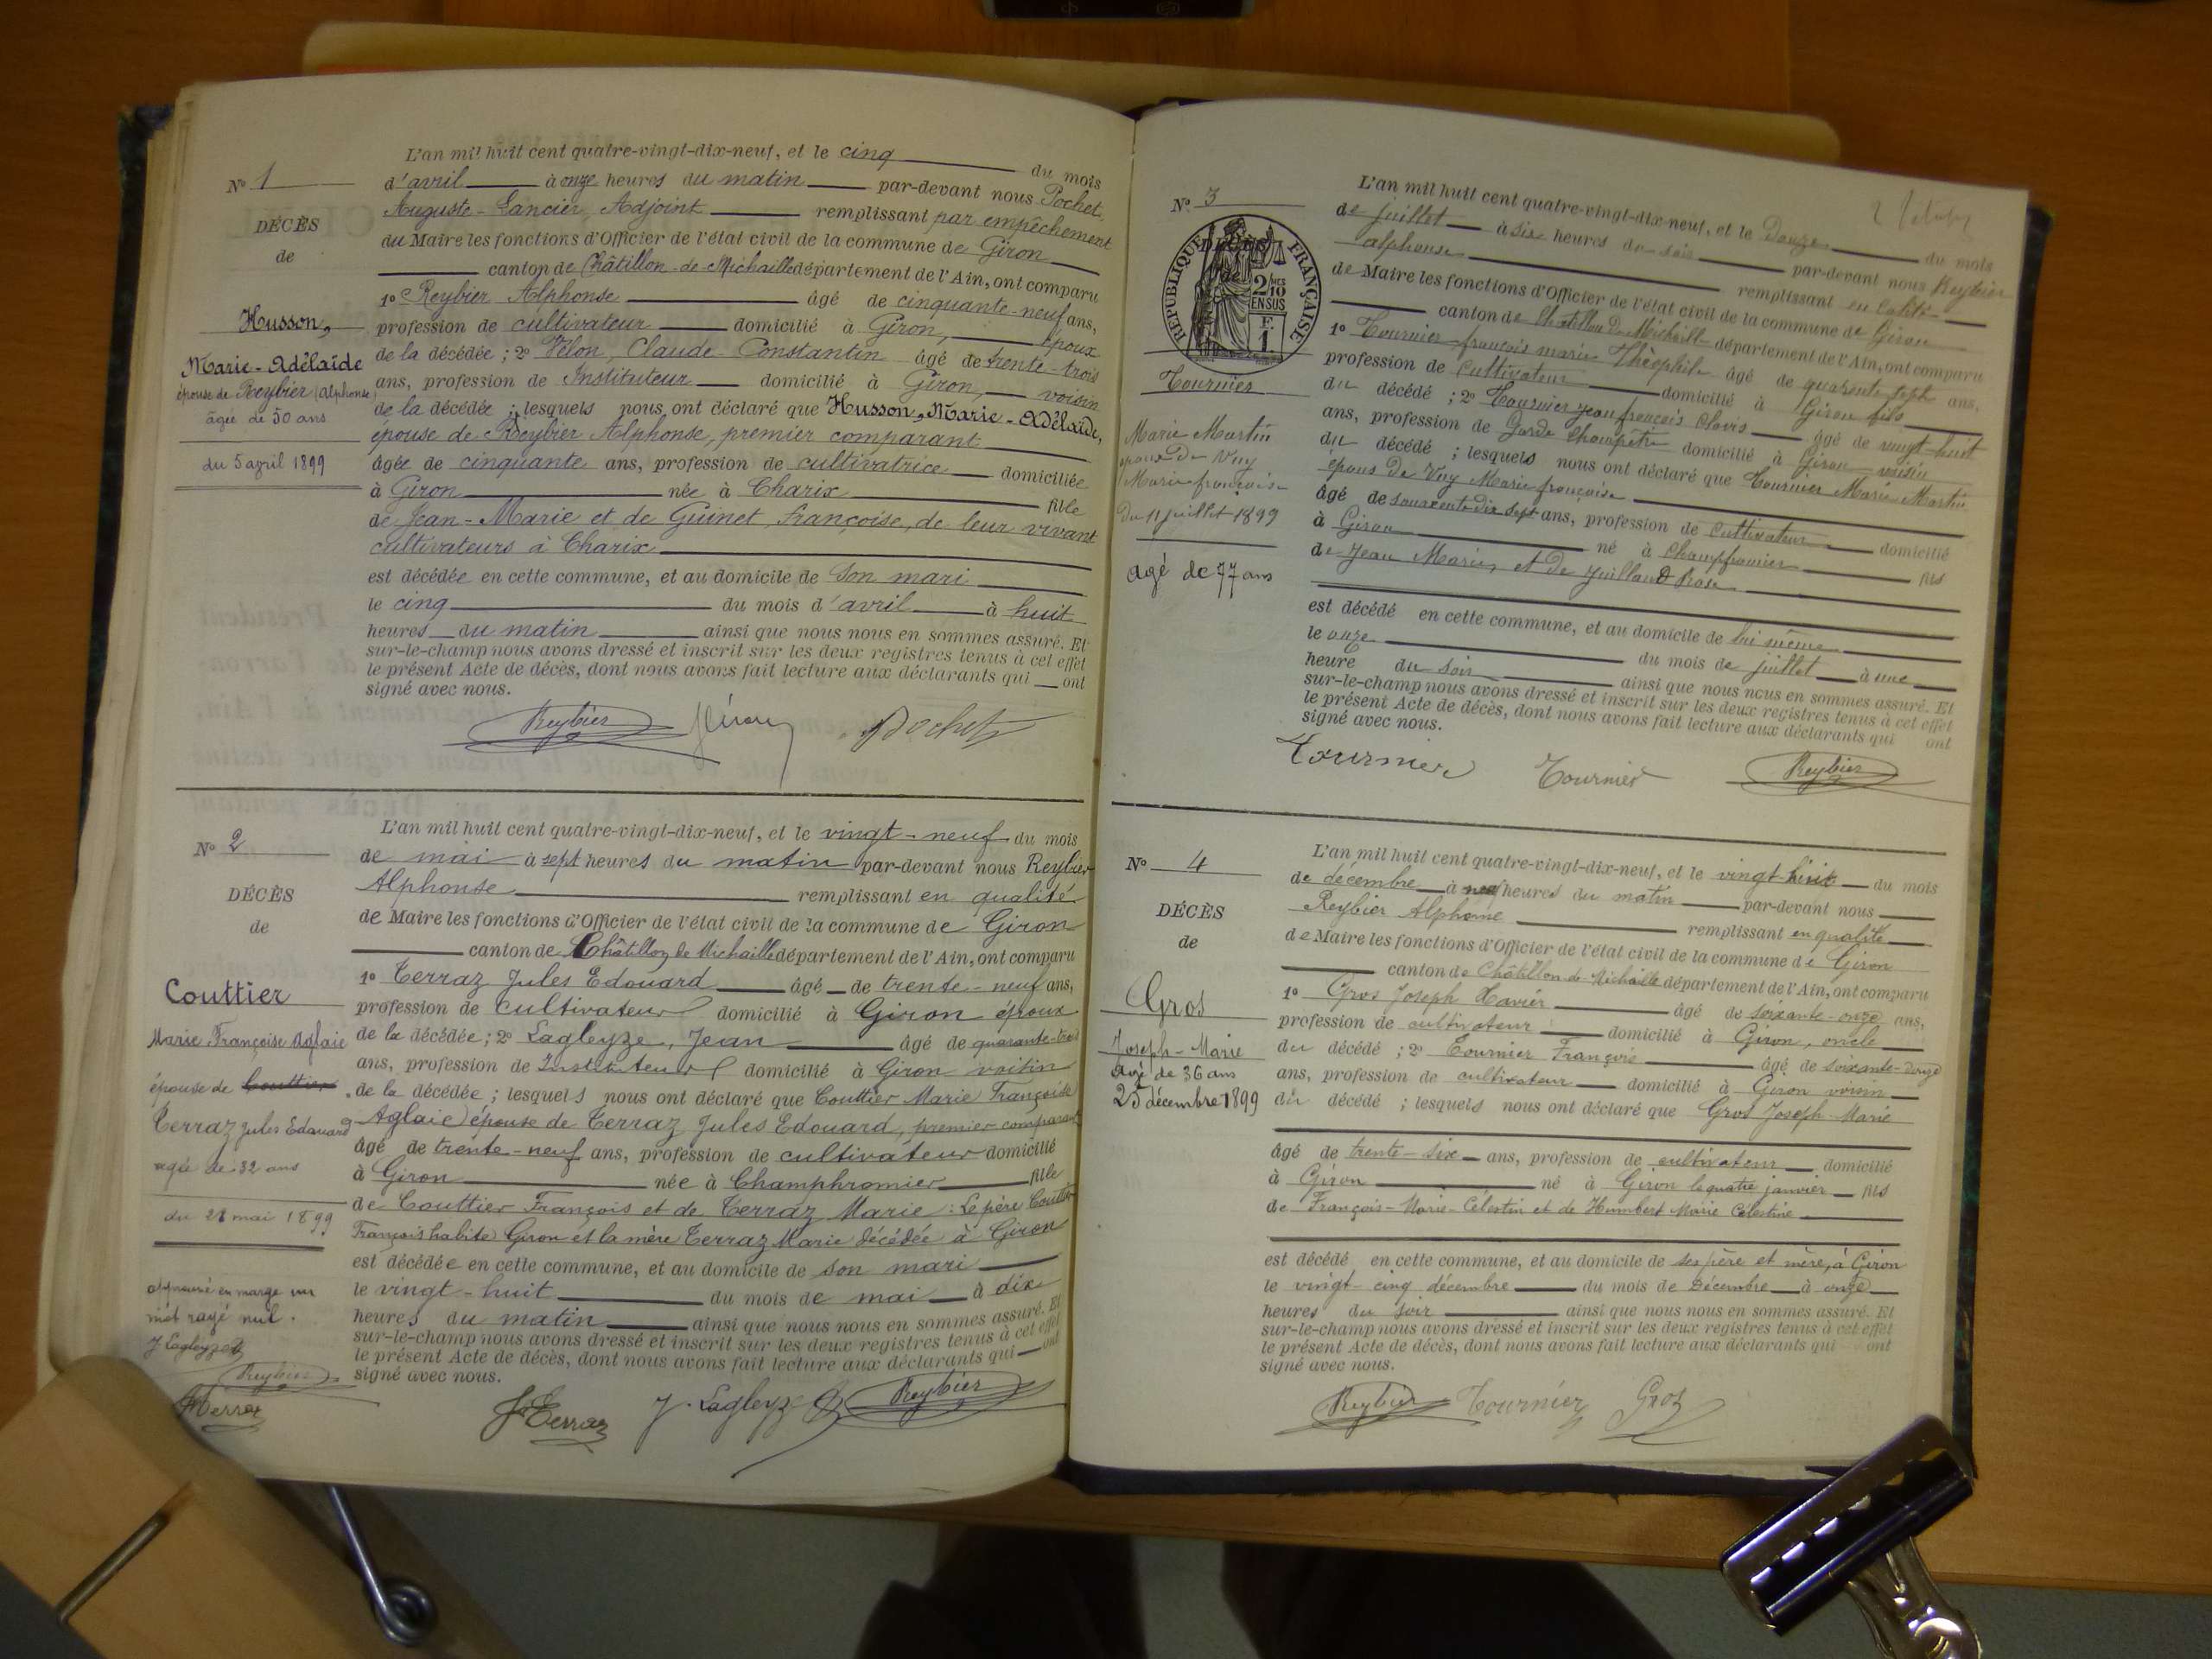 N° 1
DÉCÈS
de
Husson,
Marie-Adélaïde
épouse de Reybier (Alphonse)
âgée de 50 ans
du 5 avril 1899
L'an mil huit cent quatre-vingt-dix-neuf, et le cinq du mois
d'avril à onze heures du matin par-devant nous Pochet,
Auguste-Lancier, Adjoint remplissant par empêchement
du Maire les fonctions d'Officier de l'état civil de la commune de Giron
canton de Châtillon-de-Michaille département de l'Ain, ont comparu
1° Reybier Alphonse âgé de cinquante-neuf ans,
profession de cultivateur domicilié à Giron, époux
de la décédée ; 2° Claude-Constantin âgé de trente-trois
ans, profession de Instituteur domicilié à Giron, voisin
de la décédée ; lesquels nous ont déclaré que Husson, Marie-Adélaïde,
épouse de Reybier Alphonse, premier comparant
âgée de cinquante ans, profession de cultivatrice domiciliée
à Giron née à Charix fille
de Jean-Marie et de Guinet, françoise, de leur vivant
cultivateurs à Charix
est décédée en cette commune, et au domicile de son mari
le cinq du mois d'avril à huit
heures du matin ainsi que nous nous en sommes assuré. Et
sur-le-champ nous avons dressé et inscrit sur les deux registres tenus à cet effet
le présent Acte de décès, dont nous avons fait lecture aux déclarants qui ont
signé avec nous.
Reybier Pochet
N° 2
DÉCÈS
de
Couttier
Marie Françoise Aglaie
épouse de Couttier
Terraz Jules Edouard
agée de 32 ans
du 28 mai 1899
approuvé en marge un
mot rayé nul.
J Lagleyze
Reybier
Terraz
L'an mil huit cent quatre-vingt-dix-neuf, et le vingt-neuf du mois
de mai à sept heures du matin par-devant nous Reybier
Alphonse remplissant en qualité
de Maire les fonctions d'Officier de l'état civil de la commune de Giron
canton de Châtillon de Michaille département de l'Ain, ont comparu
1° Terraz Jules Edouard âgé de trente-neuf ans,
profession de cultivateur domicilié à Giron époux
de la décédée ; 2° Lagleyze, Jean âgé de quarante-trois
ans, profession de Instituteur domicilié à Giron voisin
de la décédée ; lesquels nous ont déclaré que Couttier Marie Françoise
Aglaie épouse de Terraz Jules Edouard, premier comparant
âgé de trente-neuf ans, profession de cultivateur domicilié
à Giron née à Champhromier fille
de Couttier François et de Terraz Marie : Le père Couttier
François habite Giron et la mère Terraz Marie décédée à Giron
est décédée en cette commune, et au domicile de son mari
le vingt-huit du mois de mai à dix
heures du matin ainsi que nous nous en sommes assuré. Et
sur-le-champ nous avons dressé et inscrit sur les deux registres tenus à cet effet
le présent Acte de décès, dont nous avons fait lecture aux déclarants qui ont
signé avec nous.
J Terraz J. Lagleyze Reybier
N° 3
DÉCÈS
RÉPUBLIQUE FRANÇAISE
2/10 EN SUS
F. 1
Tournier
Marie Martin
époux De Vuy
Marie françoise
Du 11 juillet 1899
agé de 77 ans
L'an mil huit cent quatre-vingt-dix-neuf, et le Douze du mois
de juillet à six heures du soir par-devant nous Reybier
alphonse remplissant en
de Maire les fonctions d'Officier de l'état civil de la commune de Giron
canton de Chatillon De Michaille département de l'Ain, ont comparu
1° Tournier françois marie Théophile âgé de quarente sept ans,
profession de Cultivateur domicilié à Giron fils
du décédé ; 2° Tournier jean françois Clovis âgé de vingt-huit
ans, profession de Garde Champêtre domicilié à Giron voisin
du décédé ; lesquels nous ont déclaré que Tournier Marie Martin
époux De Vuy Marie françoise
âgé de souxente Dix Sept ans, profession de Cultivateur domicilié
à Giron né à Champfromier fils
de Jean Marie, et De Juilland Rose
est décédé en cette commune, et au domicile de lui même
le onze du mois de juillet à une
heure du soir ainsi que nous nous en sommes assuré. Et
sur-le-champ nous avons dressé et inscrit sur les deux registres tenus à cet effet
le présent Acte de décès, dont nous avons fait lecture aux déclarants qui ont
signé avec nous.
Tournier Tournier Reybier
N° 4
DÉCÈS
de
Gros
Joseph-Marie
agé de 36 ans
25 décembre 1899
L'an mil huit cent quatre-vingt-dix-neuf, et le vingt-huit du mois
de décembre à neuf heures du matin par-devant nous
Reybier Alphonse remplissant en qualité
de Maire les fonctions d'Officier de l'état civil de la commune de Giron
canton de Châtillon-de-Michaille département de l'Ain, ont comparu
1° Gros Joseph Xavier âgé de soixante-onze ans,
profession de cultivateur domicilié à Giron, oncle
du décédé ; 2° Tournier François âgé de soixante-douze
ans, profession de cultivateur domicilié à Giron voisin
du décédé ; lesquels nous ont déclaré que Gros Joseph-Marie
âgé de trente-six ans, profession de cultivateur domicilié
à Giron né à Giron le quatre janvier fils
de François-Marie-Célestin et de Humbert Marie Célestine
est décédé en cette commune, et au domicile de ses père et mère, à Giron
le vingt-cinq décembre du mois de Décembre à onze
heures du soir ainsi que nous nous en sommes assuré. Et
sur-le-champ nous avons dressé et inscrit sur les deux registres tenus à cet effet
le présent Acte de décès, dont nous avons fait lecture aux déclarants qui ont
signé avec nous.
Reybier Tournier Gros